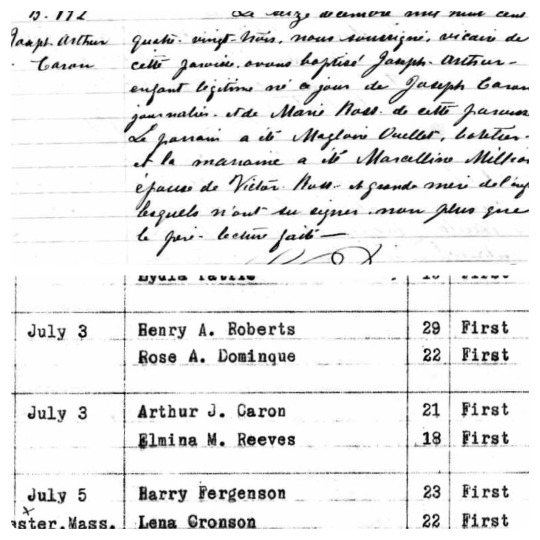 B. 172
Joseph Arthur
Caron
Le seize decembre mil huit cent
quatre-vingt trois, nous soussigné, vicaire de
cette paroisse, avons baptisé Joseph-Arthur-
enfant légitime né ce jour de Joseph Caron
journalier et de Marie Ross de cette paroisse
Le parrain a été Magloire Ouellet,
et la marraine a été Marcelline Millier
épouse de Victor Ross et grande mère de l'enf
lesquels n'ont su signer non plus que
le père. lecture fait
First
July 3 Henry A. Roberts 29 First
Rose A. Dominque 22 First
July 3 Arthur J. Caron 21 First
Elmina M. Reeves 18 First
July 5 Harry Fergenson 23 First
ster, Mass. Lena Cronson 22 First